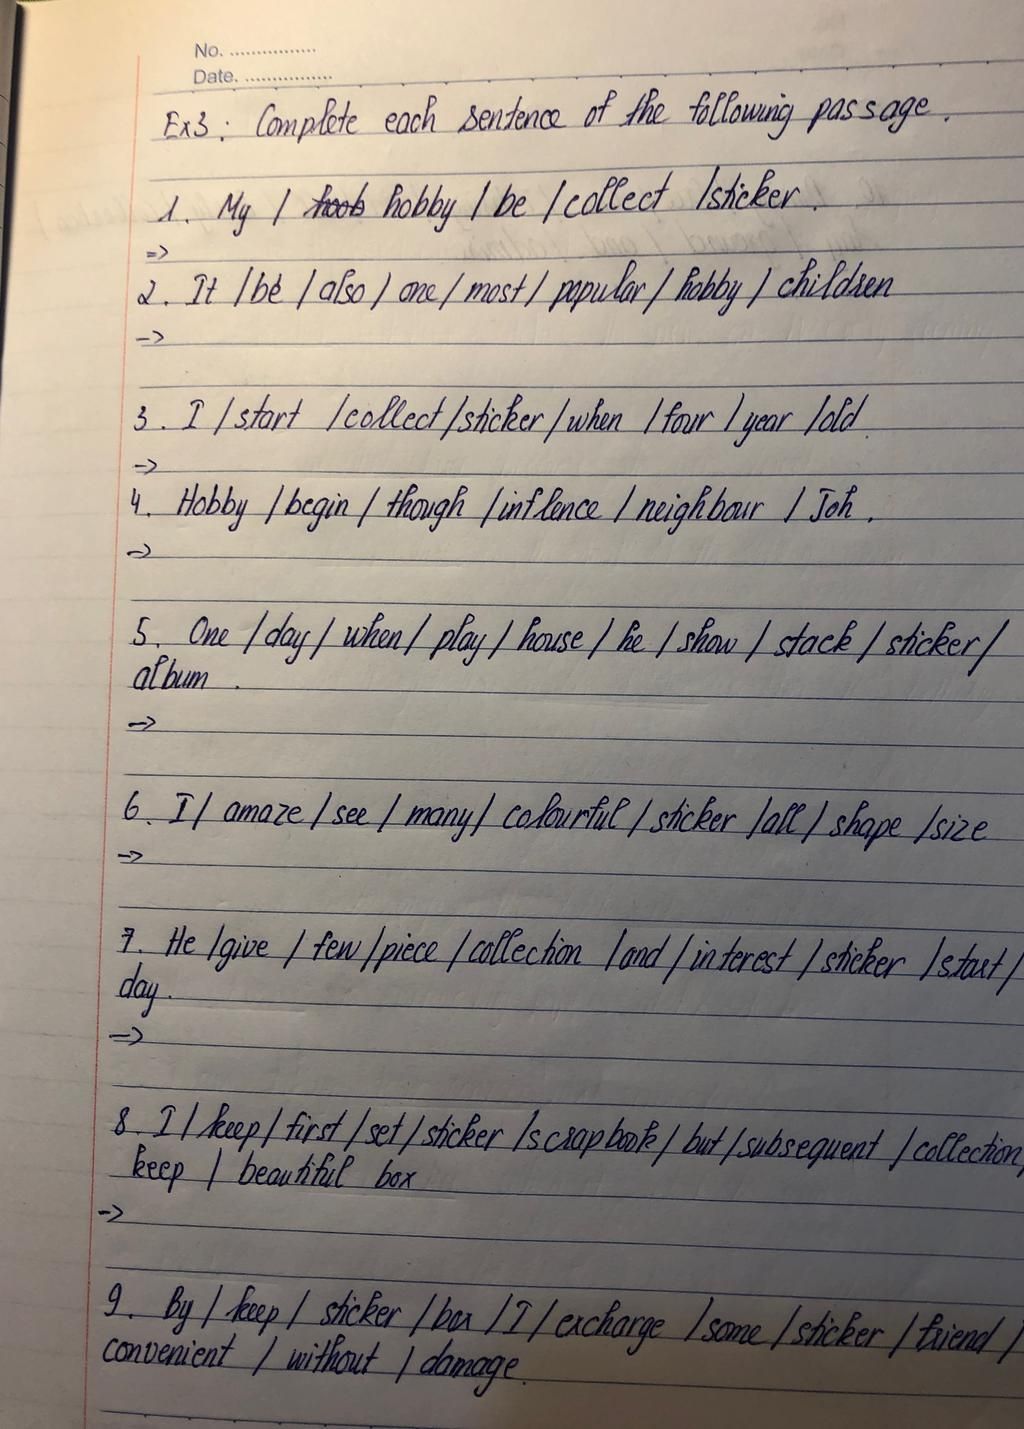 No. ................
Date. ................
Ex3: Complete each sentence of the following passage.
1. My / hoob hobby / be / collect / sticker.
=>
2. It / be / also / one / most / popular / hobby / children
->
3. I / start / collect / sticker / when / four / year / old.
->
4. Hobby / begin / though / inflence / neighbour / Joh.
->
5. One / day / when / play / house / he / show / stack / sticker /
album.
->
6. I / amaze / see / many / colourful / sticker / all / shape / size
->
7. He / give / few / piece / collection / and / interest / sticker / start /
day.
->
8. I / keep / first / set / sticker / scrapbook / but / subsequent / collection/
keep / beautiful box
->
9. By / keep / sticker / box / I / exchange / some / sticker / friend /
convenient / without / damage.